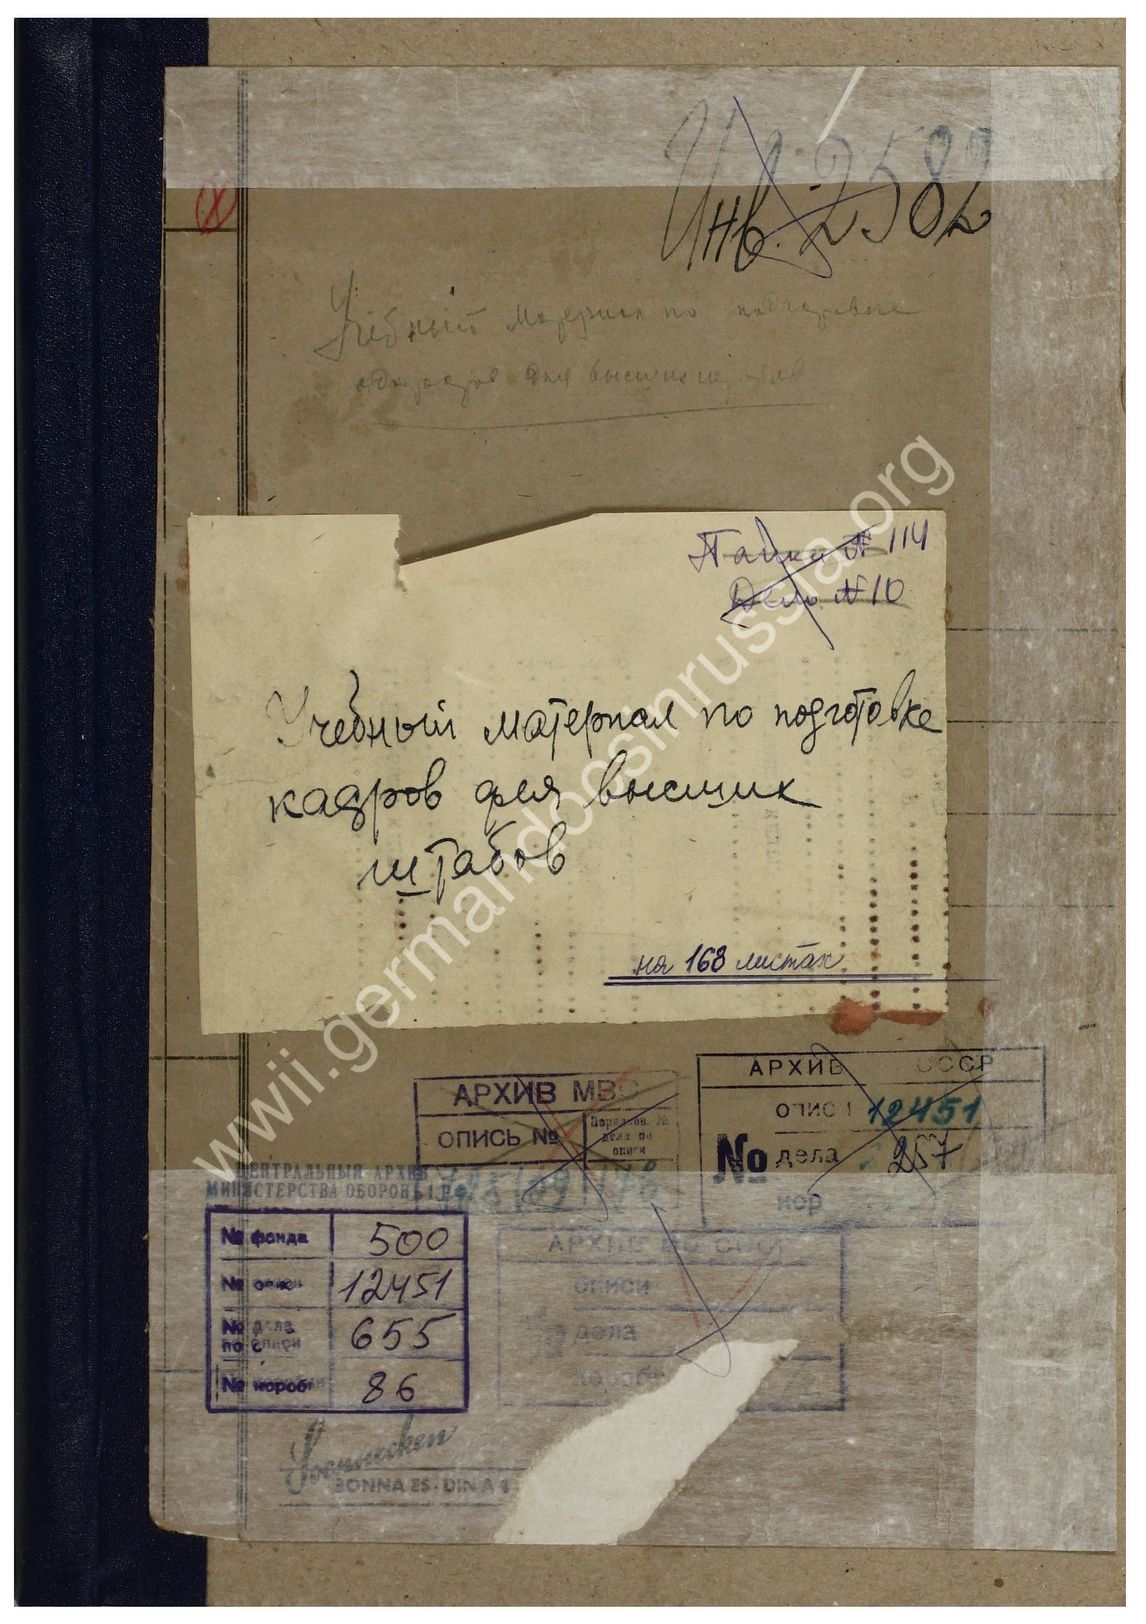 Инв. 2582
Учебный материал по подготовке
для высших штабов
Папка № 114
Дело № 10
Учебный материал по подготовке
кадров для высших
штабов
на 168 листах
АРХИВ МВС
ОПИСЬ №
Порядков. №
дела по
описи
178
АРХИВ СССР
описи 12451
№ дела 257
кор
ЦЕНТРАЛЬНЫЙ АРХИВ
МИНИСТЕРСТВА ОБОРОНЫ РФ
№ фонда 500
№ описи 12451
№ дела
по описи 655
№ коробки 86
АРХИВ МО СССР
описи
дела
коробк
Soennecken
BONNA ES · DIN A 4
wwii.germandocsinrussia.org